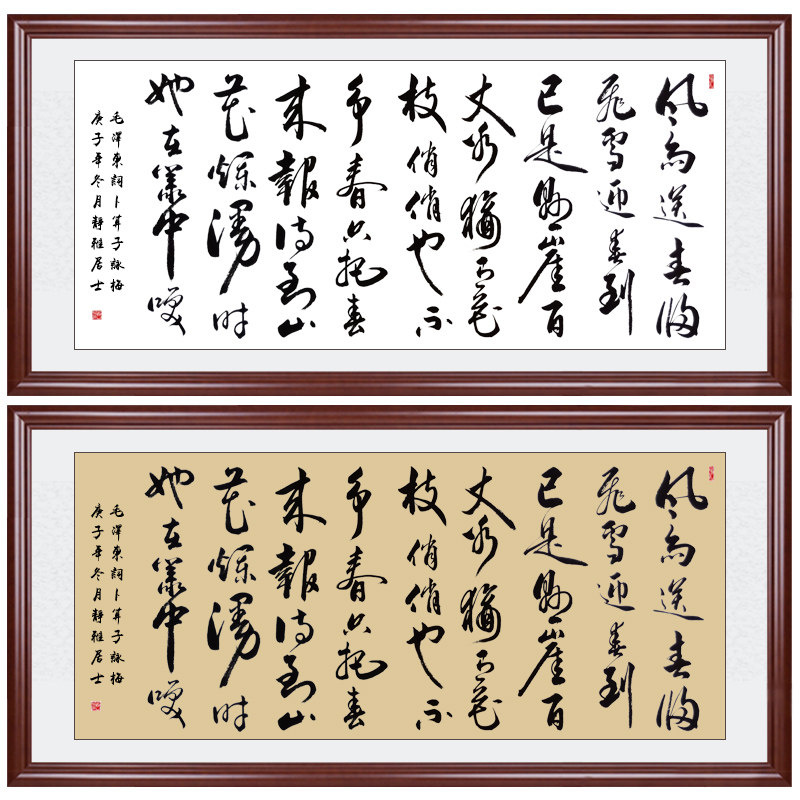 风雨送春归
飛雪迎春到
已是懸崖百
丈冰猶有花
枝俏俏也不
争春只把春
来報待到山
花爛漫時
她在叢中笑
毛澤東詞卜算子詠梅
庚子年冬月靜雅居士
风雨送春归
飛雪迎春到
已是懸崖百
丈冰猶有花
枝俏俏也不
争春只把春
来報待到山
花爛漫時
她在叢中笑
毛澤東詞卜算子詠梅
庚子年冬月靜雅居士